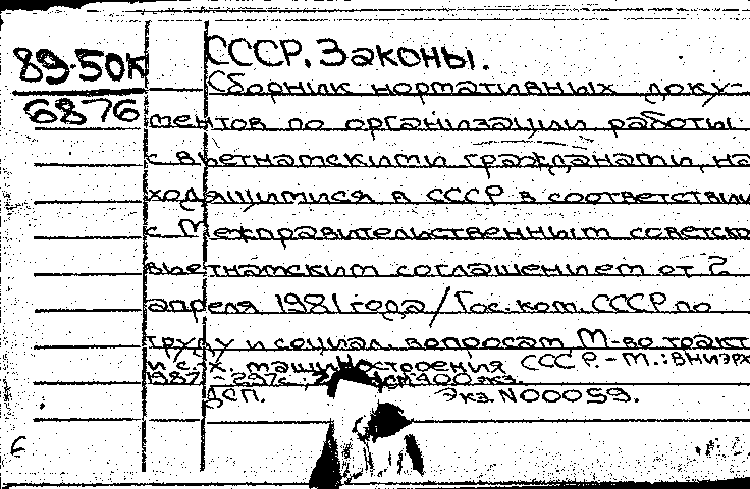 89-50К
6876
СССР. Законы.
Сборник нормативных доку-
ментов по организации работы
с вьетнамскими гражданами, на
ходящимися в СССР в соответствии
с Межправительственным советско
вьетнамским соглашением от 2
апреля 1981 года / Гос. ком. СССР по
труду и социал. вопросам М-во тракт
и с.х. машиностроения СССР. - М.: ВНИЭРХ
1987. - 297с.; 400 экз.
ДСП. Экз. N00059.
6